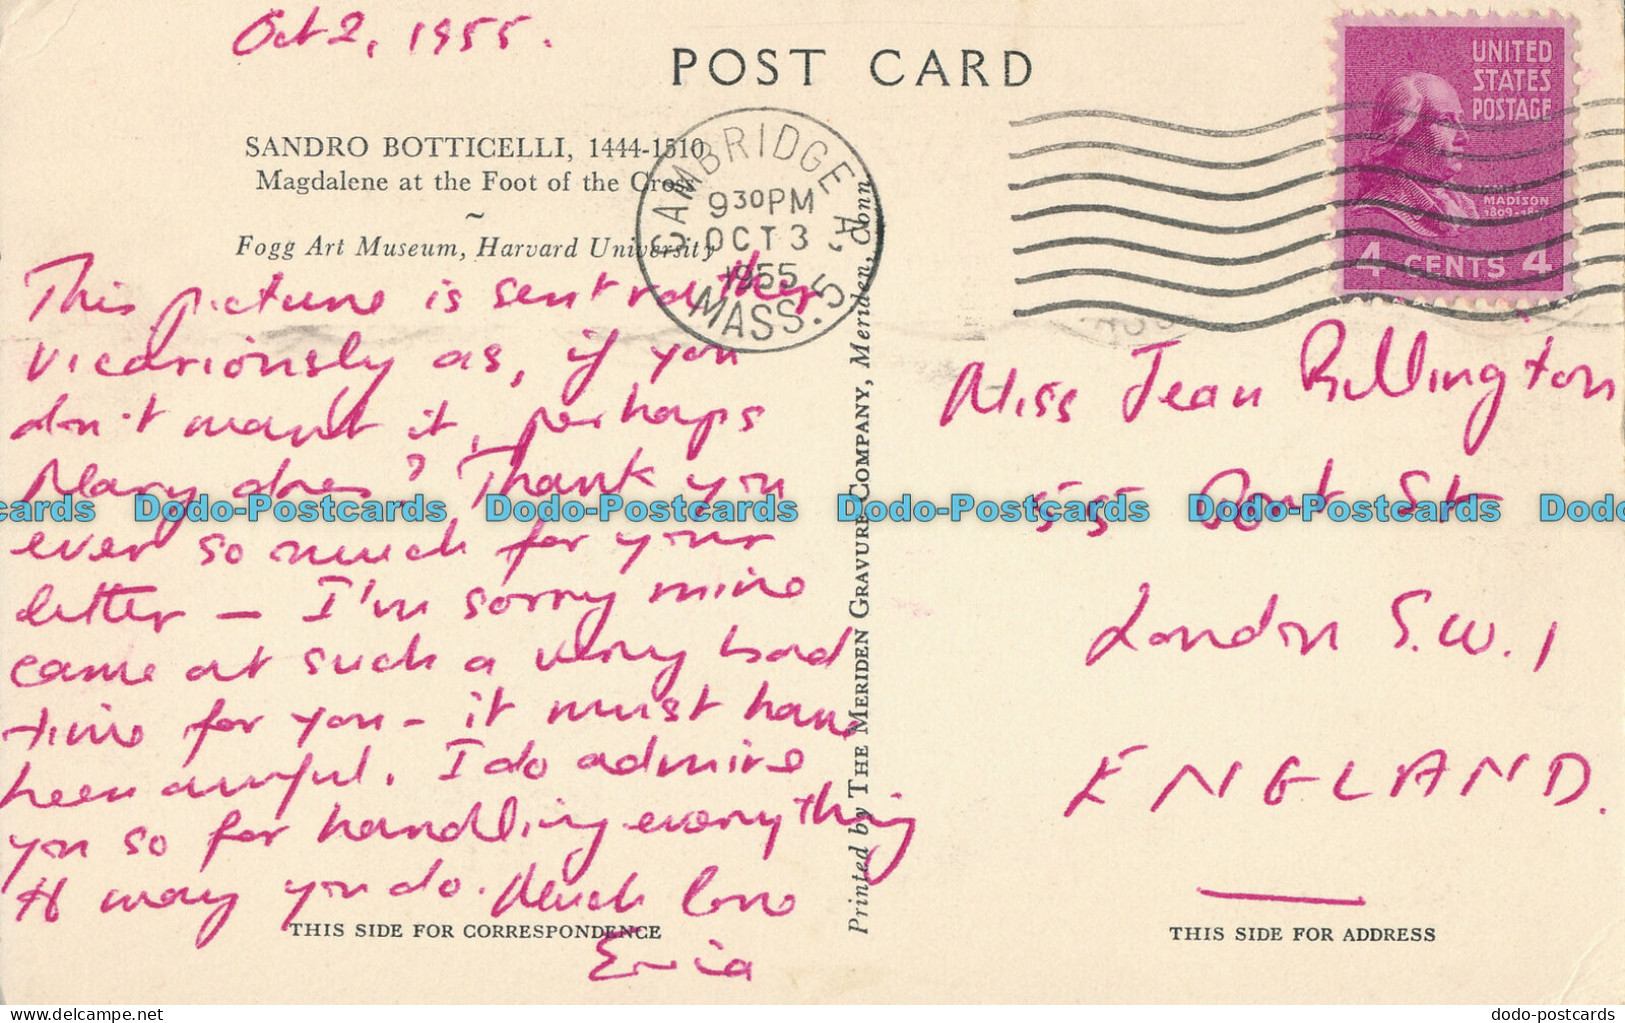 Oct 2, 1955.
POST CARD
SANDRO BOTTICELLI, 1444-1510
Magdalene at the Foot of the Cross
~
Fogg Art Museum, Harvard University
This picture is sent rather
vicariously as, if you
don't want it, perhaps
Mary does? Thank you
ever so much for your
letter — I'm sorry mine
came at such a very bad
time for you – it must have
been awful. I do admire
you so for handling everything
way you do. Much love
Erica
THIS SIDE FOR CORRESPONDENCE
CAMBRIDGE
930PM
OCT 3
1955
MASS. 5
Printed by THE MERIDEN GRAVURE COMPANY, Meriden, Conn.
UNITED
STATES
POSTAGE
MADISON
4 CENTS 4
Miss Jean Billington
55 Pont St
London S.W.1
ENGLAND.
THIS SIDE FOR ADDRESS
Dodo-Postcards Dodo-Postcards Dodo-Postcards Dodo-Postcards
My Postcards Store
dodo-postcards